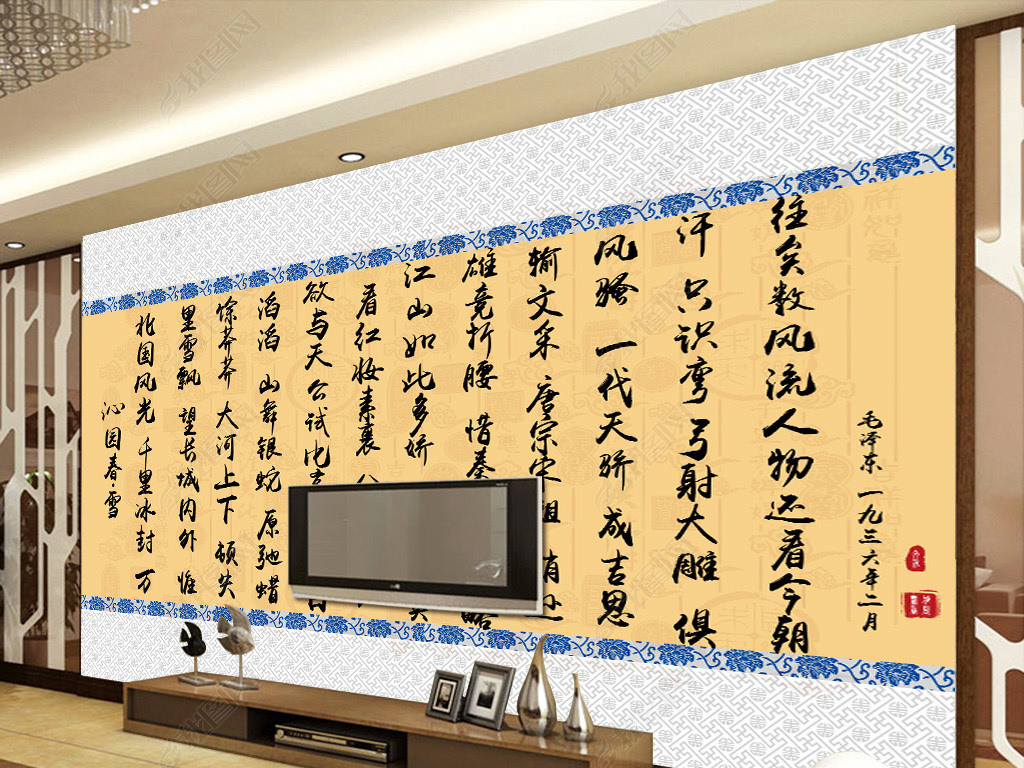 沁园春·雪
北国风光 千里冰封 万
里雪飘 望长城内外 惟
馀莽莽 大河上下 顿失
滔滔 山舞银蛇 原驰蜡
欲与天公试比
看红妆素裹
江山如此多娇
雄竞折腰 惜秦
输文采 唐宗宋
风骚 一代天骄 成吉思
汗 只识弯弓射大雕 俱
往矣数风流人物还看今朝
毛泽东 一九三六年二月
我图网